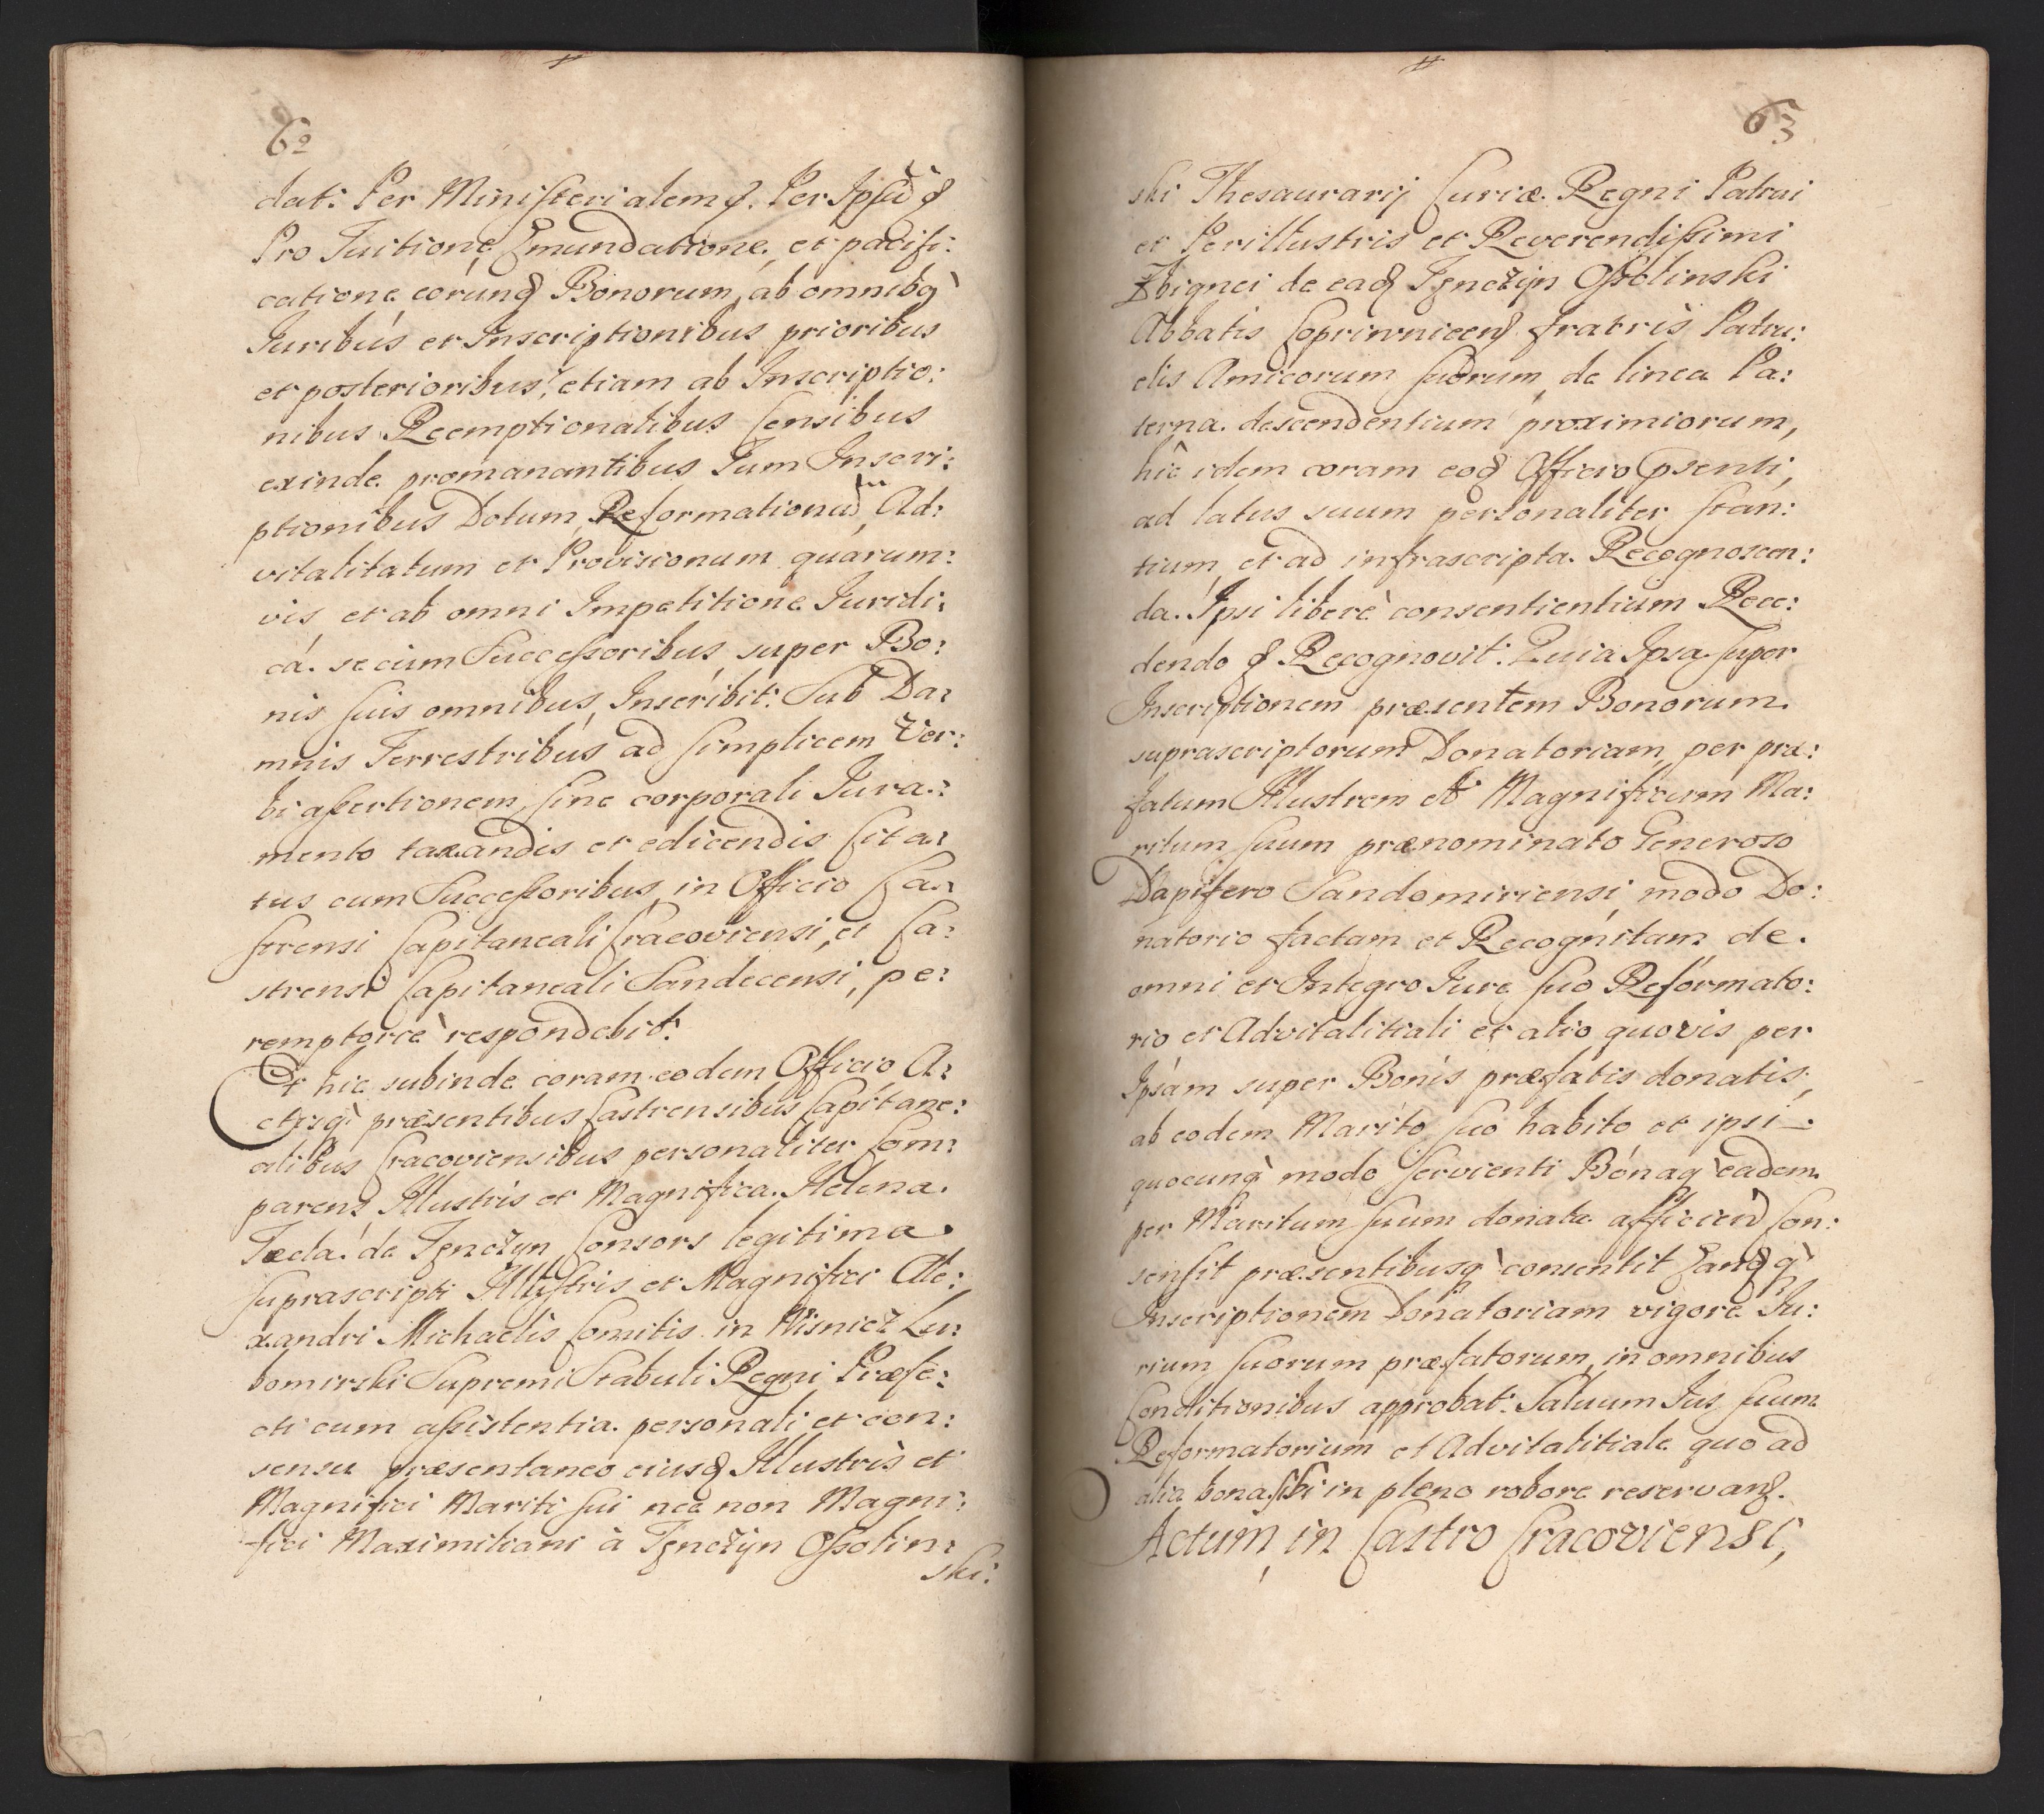 62
dat: Per Ministerialem &. Per Ipsũ &
Pro Tuitione Emundatione, et pacifi:
catione eorund Bonorum, ab omnibq
Juribus et Inscriptionibus prioribus
et posterioribus, etiam ab Inscriptio:
nibus Reemptionalibus Censibus
exinde promanantibus Tum Inscri:
ptionibus Dotum Reformationũ, Ad:
vitalitatum et Provisionum quarum:
vis et ab omni Impetitione Juridi:
cá. se cum Successoribus super Bo:
nis suis omnibus, Inscribit: Sub Da:
mnis Terrestribus ad simplicem Ver:
bi assertionem, sine corporali Jura:
mento taxandis et edicendis Cita:
tus cum Successoribus, in Officio Ca:
strensi Capitaneali Cracoviensi, et Ca:
strensi Capitaneali Sandecensi, pe:
remptorie respondebit.
Et hic subinde coram eodem Officio A:
ctisq præsentibus Castrensibus Capitane:
alibus Cracoviensibus personaliter Com:
parens Illustris et Magnifica Helena
Tecla de Tęnczyn Consors legitima
suprascripti Illustris et Magnifici Ale:
xandri Michaelis Comitis in Wisnicz Lu:
bomirski Supremi Stabuli Regni Præfe:
cti cum assistentia personali et con:
sensu præsentaneo eiusd Illustris et
Magnifici Mariti sui nec non Magni:
fici Maximiliani à Tęnczyn Ossolin:
ski:
63
ski Thesaurarij Curiæ Regni Patrui
et Perillustris et Reverendissimi
Zbignei de ead Tęnczyn Ossolinski
Abbatis Coprivnicens fratris Patru:
elis Amicorum suorum, de linea Pa:
terna descendentium proximiorum,
hic idem coram eod Officio psenti,
ad latus suum personaliter stan:
tium, et ad infrascripta Recognoscen:
da. Ipsi liberè consentientium Rece:
dendo & Recognovit: Quia Ipsa super
Inscriptionem præsentem Bonorum
suprascriptorum Donatoriam, per præ:
fatum Illustrem et Magnificum Ma:
ritum suum prænominato Generoso
Dapifero Sandomiriensi modo Do:
natorio factam et Recognitam de
omni et Integro Jure suo Reformato:
rio et Advitalitiali et alio quovis per
Ipsam super Bonis præfatis donatis,
ab eodem Marito suo habito et ipsi
quocunq modo servienti Bonaq eadem
per Maritum suum donata afficiend Con:
sensit præsentibusq consentit Eandq
Inscriptionem Donatoriam vigore Ju:
rium suorum præfatorum, in omnibus
Conditionibus approbat: Salvum Jus suum
Reformatorium et Advitalitiale quo ad
alia bona sibi in pleno robore reservans.
Actum, in Castro Cracoviensi,